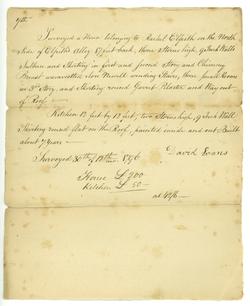 Surveyed a House belonging to Rachel Elfrith on the North
side of Elfriths Alley 17 feet back, three Stories high, 9 Inch Walls
and Skirting in first and second Story and Chimney
Breast wainscotted, close Newell winding Stairs, three small Rooms
in 3d Story, and Skirting round Garret Plaster and Way out
of Roof.
Kitchen 12 feet by 12 feet, two Stories high, 9 Inch Wall
Skirting round flat on the Roof, painted inside and out. Built
about Years
Surveyed 30th of 12 mo. 1796
David Evans
House £ 200
Kitchen £ 50
at